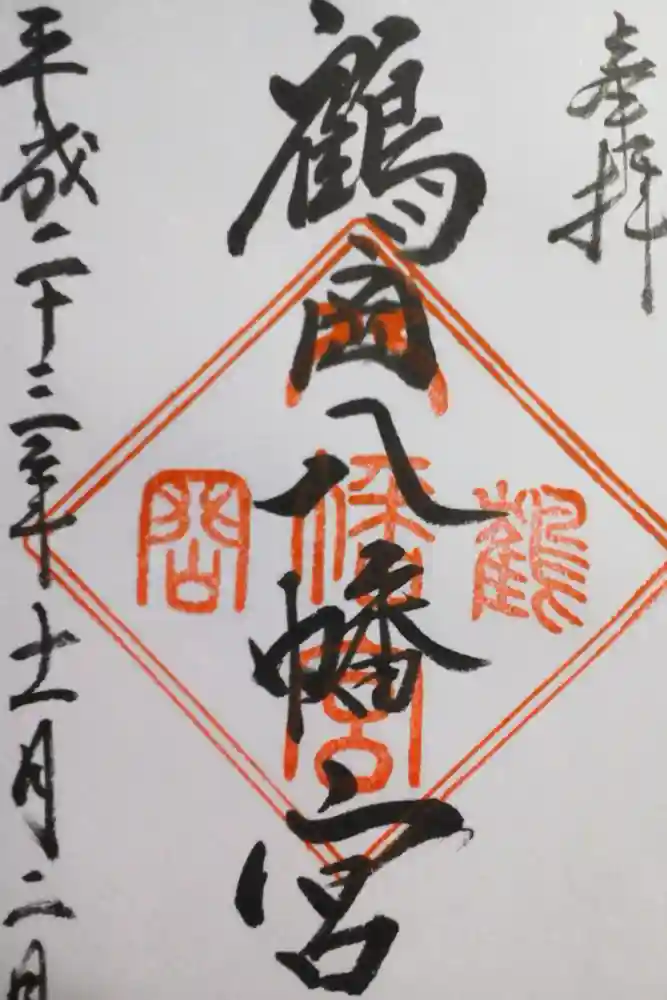 奉拝
鶴岡八幡宮
鶴 岡 八幡宮
平成二十三年十一月二日